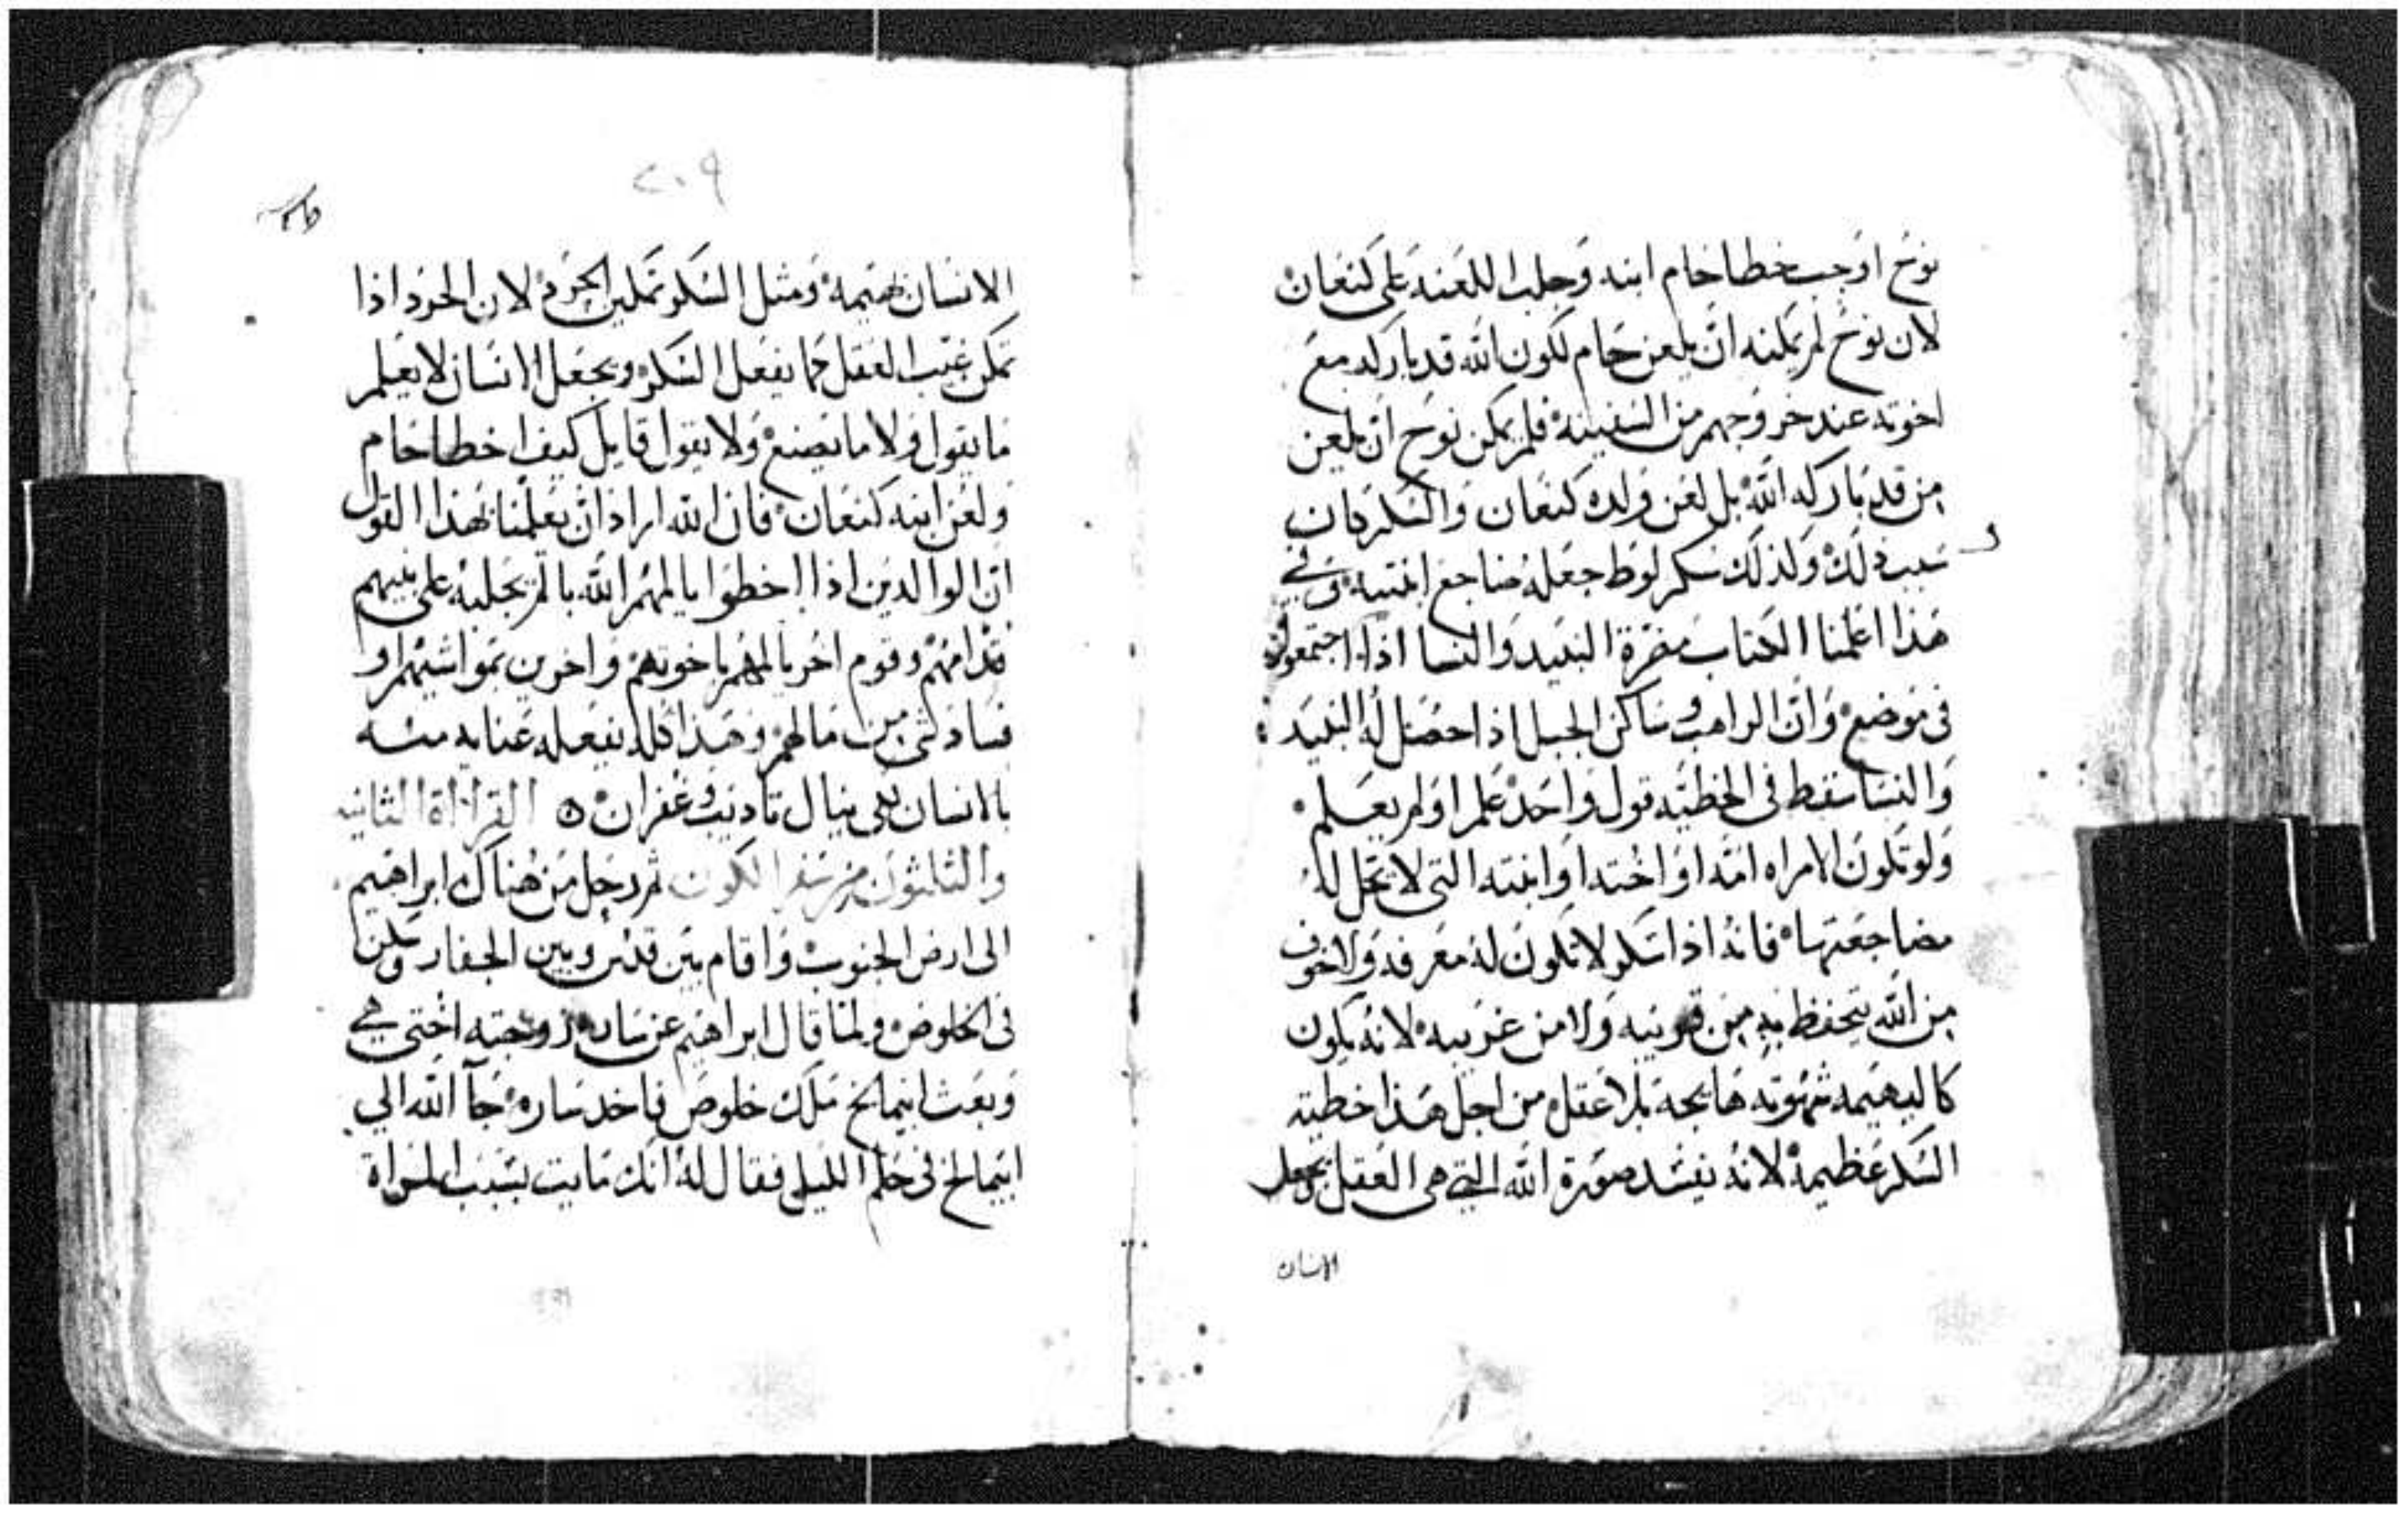 نوح اوجب خطا حام ابنه وجلب اللعنه على كنعان
لان نوح لم يمكنه ان يلعن حام لكون الله قد باركه مع
اخوته عند خروجهم من السفينه فلم يمكن نوح ان يلعن
من قد باركه الله بل لعن ولده كنعان والسكر كان
سبب ذلك ولذلك سكر لوط جعله ضاجع ابنتيه وفي
هذا اعلمنا الكتاب مضرة النبيد والنسا اذا اجتمعوا
في موضع وان الراهب وساكن الجبل اذا حصل له النبيد
والنسا سقط في الخطيه قول واحد علم او لم يعلم
ولو تكون الامراه امه او اخته او ابنته التي لا تحل له
مضاجعتها فانه اذا سكر لا تكون له معرفه ولا خوف
من الله يتحفظ به من قريبه ولا من غريبه لانه يكون
كالبهيمه شهوته هايجه بلا عقل من اجل هذا خطية
السكر عظيمه لانه يفسد صورة الله التي هي العقل ويجعل
الانسان
٢٠٩
الانسان بهيمه ومثل السكر تمكين الحرد لان الحرد اذا
تمكن غيب العقل كما يفعل السكر ويجعل الانسان لا يعلم
ما يقول ولا ما يصنع ولا يقول قايل كيف اخطا حام
ولعن ابنه كنعان فان الله اراد ان يعلمنا بهذا القول
ان الوالدين اذا اخطوا يالمهم الله بالم يجلبه على بنيهم
قدامهم وقوم اخر يالمهم باخوتهم واخرين بمواشيهم او
فساد شي من مالهم وهذا كله يفعله عنايه منه
بالانسان لكي ينال تاديب وغفران القراة الثانيه
والثلثون من سفر الكون ثم رحل من هناك ابراهيم
الى ارض الجنوب واقام بين قدس وبين الجفار وسكن
في الخلوص ولما قال ابراهيم عن ساره زوجته اختي هي
وبعث ابيمالخ ملك خلوص فاخد ساره جآ الله الي
ابيمالخ في حلم الليل فقال له انك مايت بسبب المراة